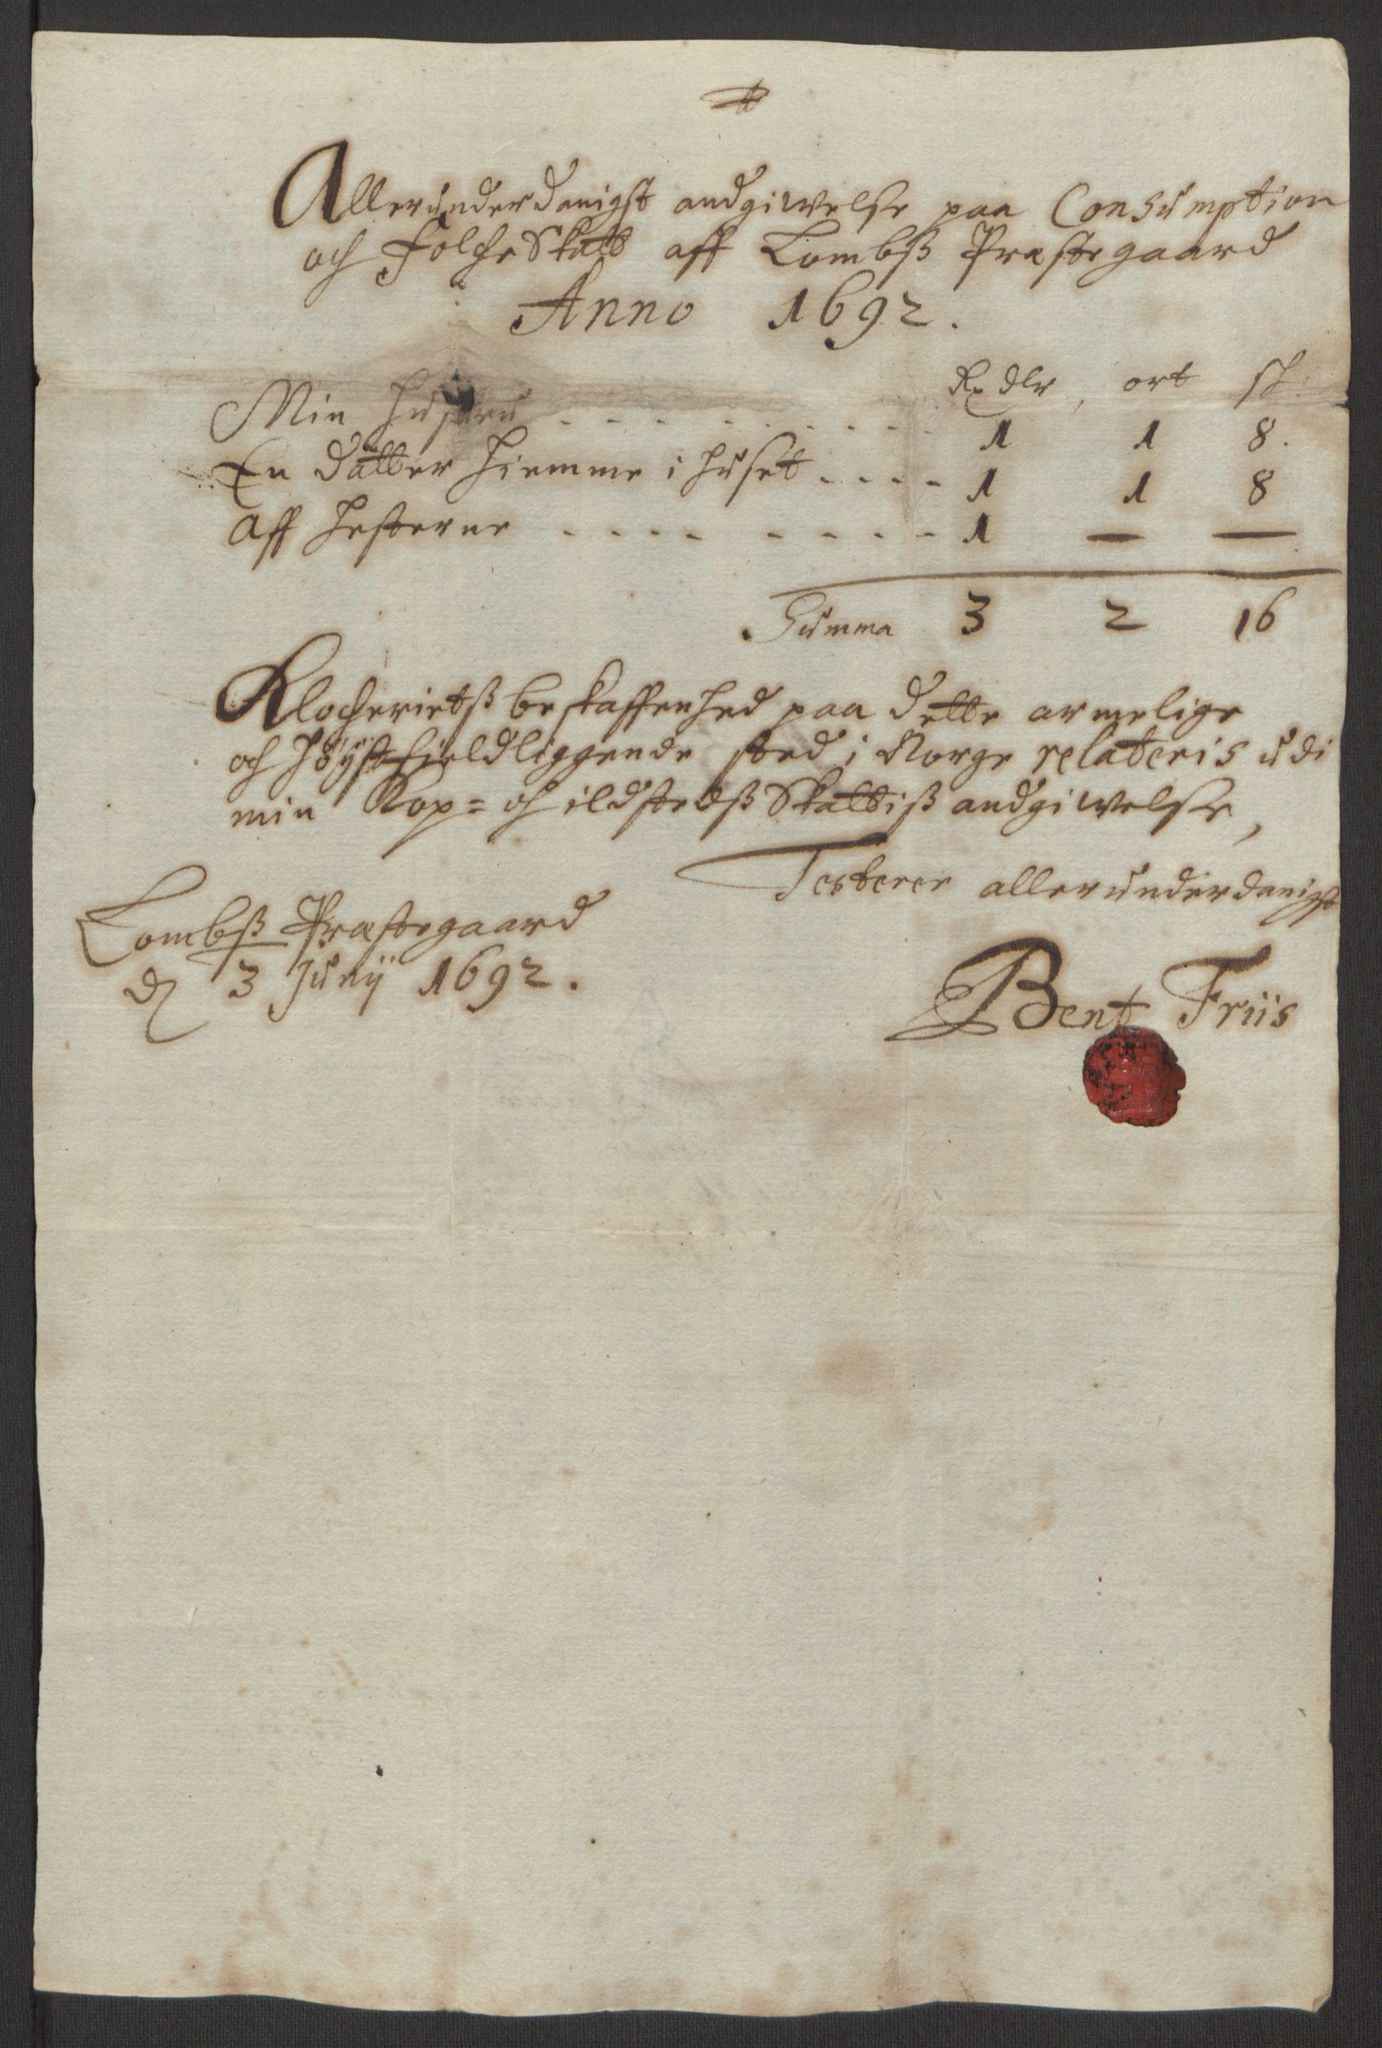 Allerunderdanigst andgiwelse paa Consumption
och FolcheSkatt aff Lombß Præstegaard
Anno 1692.
Rx dlr, ort sk
Min hustru . . . . . . . . . 1 1 8.
En datter hiemme i huset . . . . 1 1 8
Aff hesterne . . . . . . . . 1 — —
Summa 3 2 16
Klocherietß beskaffenhed paa dette armelige
och höyst fieldliggende sted i Norge relateris udi
min Kop= och ildstedß Skattiß andgiwelse,
Testerer allerunderdanigst
Lombß Præstegaard
d 3 Junij 1692.
Bent Friis